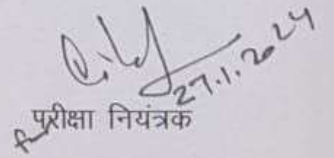 27.1.2024
परीक्षा नियंत्रक